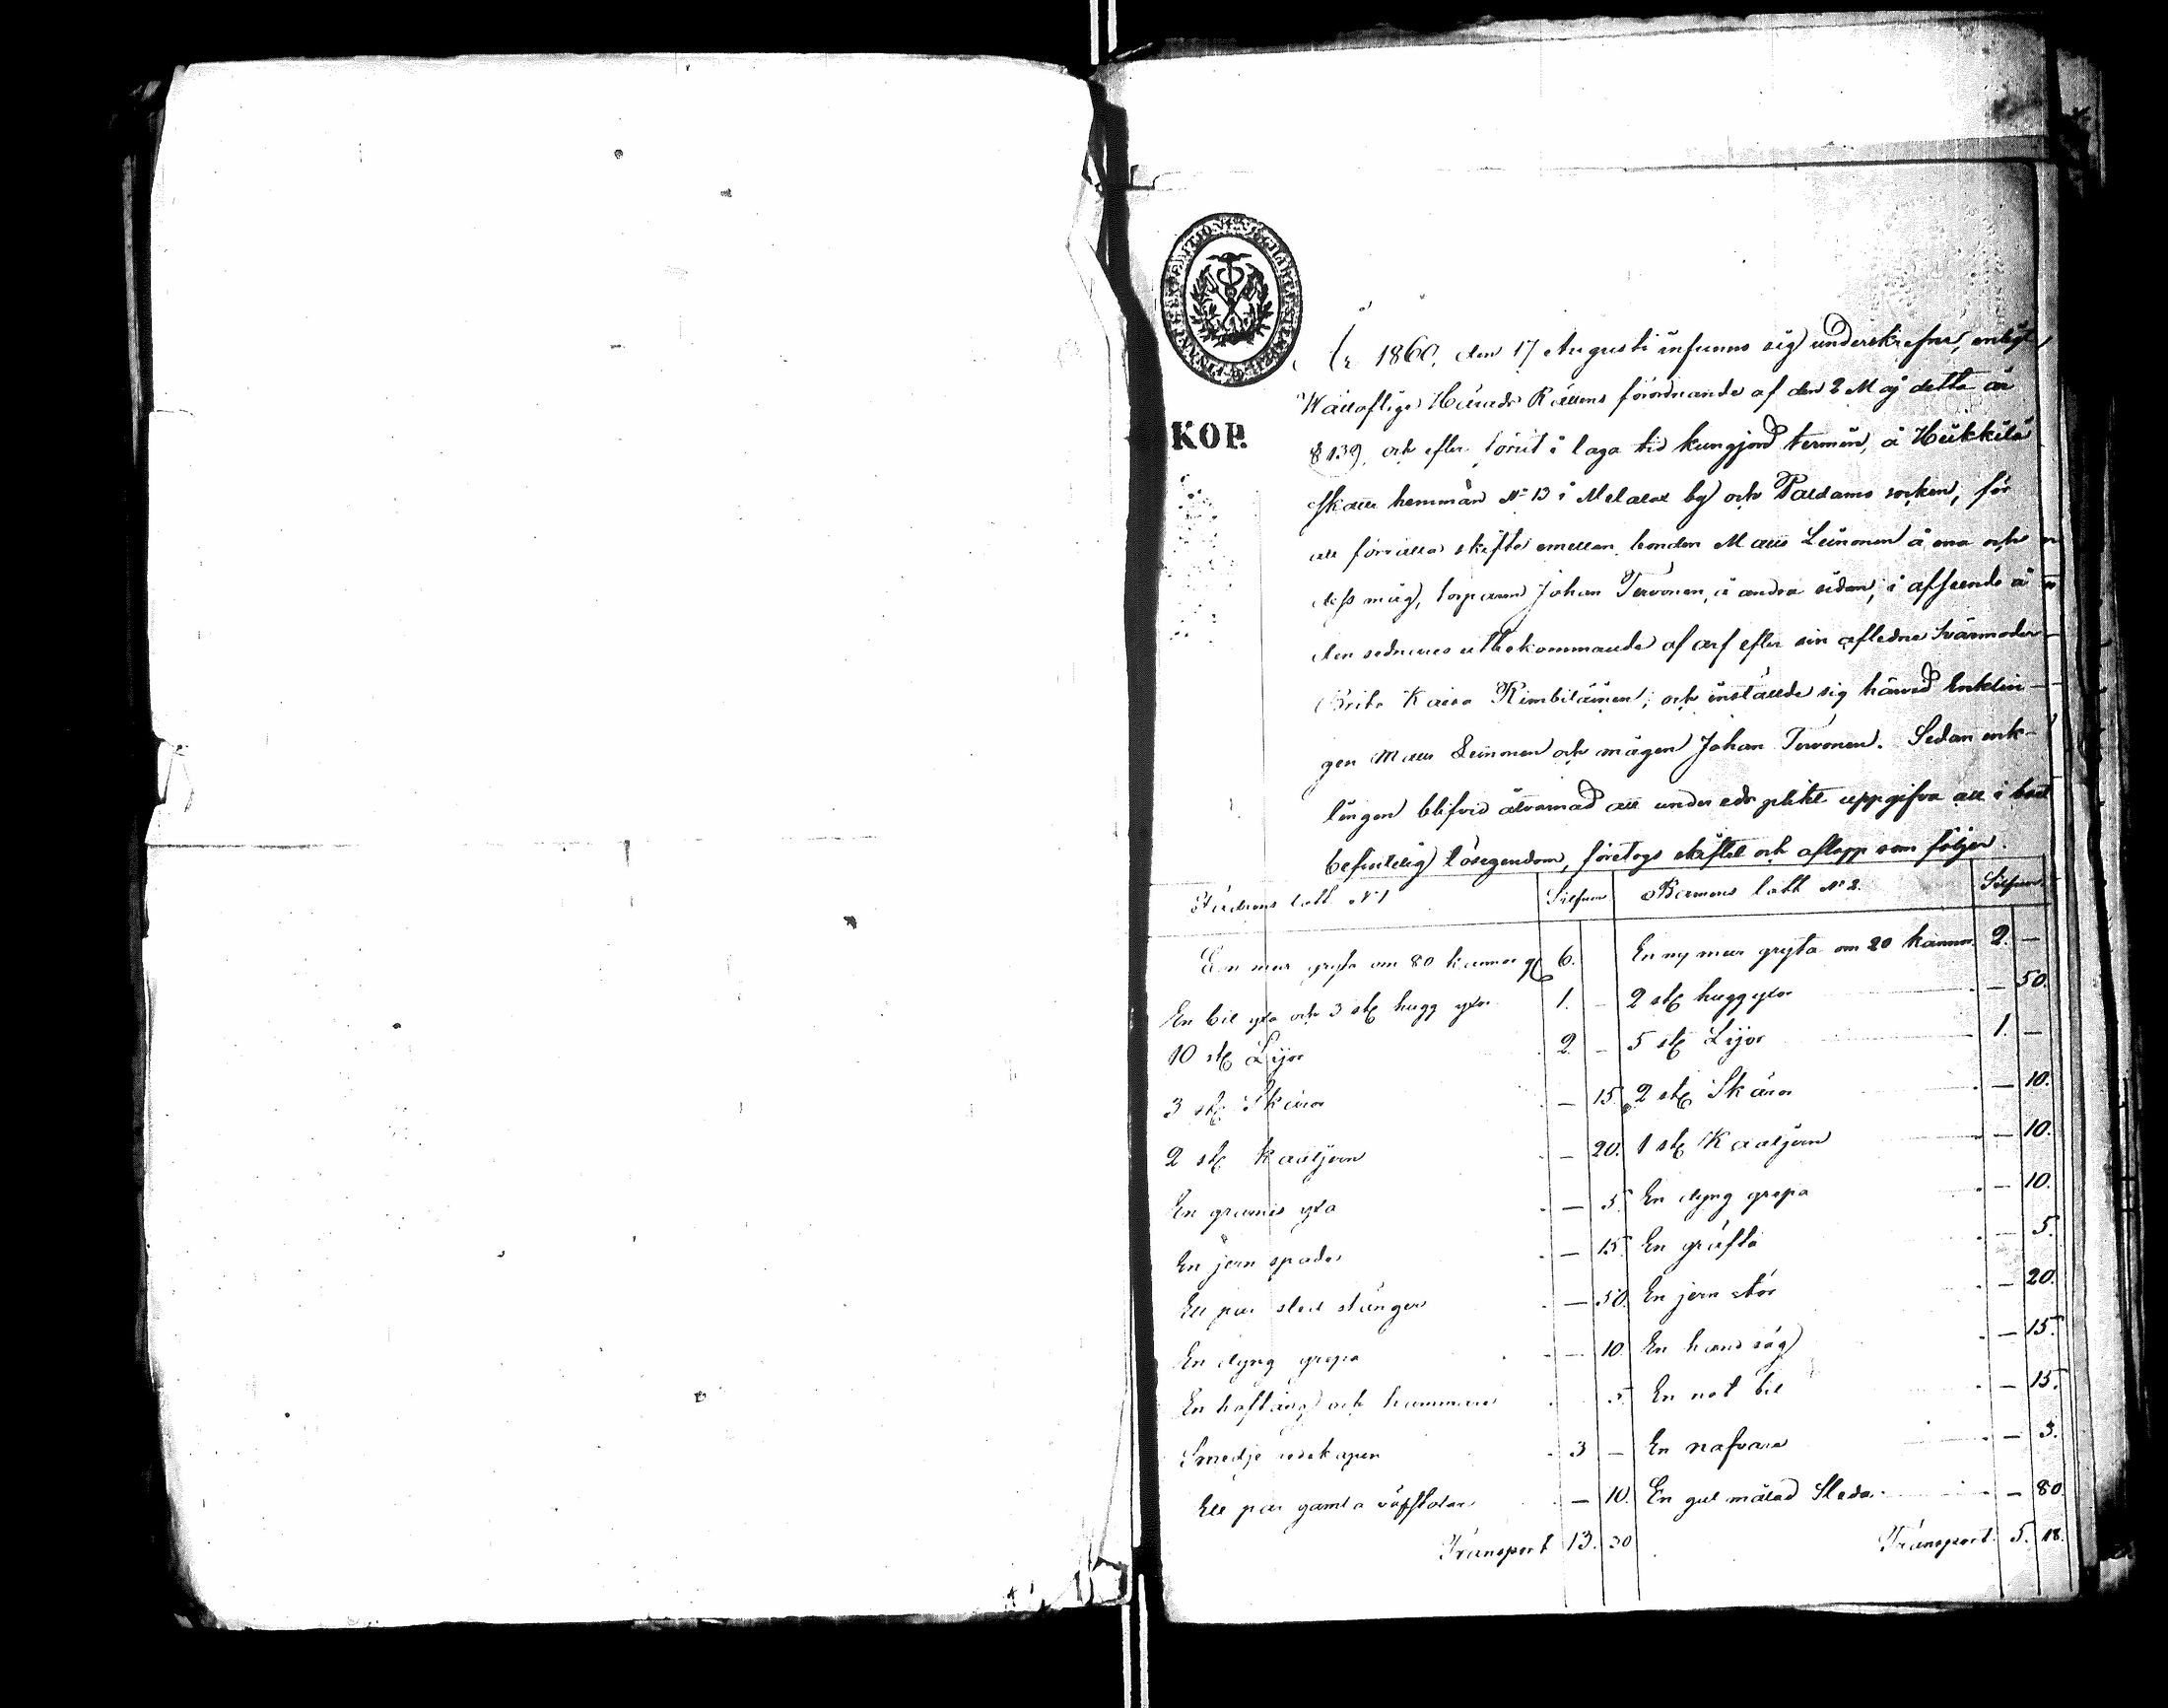 KOP.
År 1860, den 17 Augusti infunno sig underskrefne, enligt
Wällofliga Härads Rättens förordnande af den 2 Maj detta år
§ 139, och efter förut i laga tid kungjord termin, å Heikkilä
Skatte hemman № 13 i Melalax by och Paldamo socken, för
att förrätta skifte emellan bonden Matts Leinonen å ena och
dess måg, torparen Johan Tervonen, å andra sidan, i afseende å
den sednares utbekommande af arf efter sin afledne Svärmoder
Brita Kaisa Kimbiläinen; och inställde sig härvid Enklin-
gen Matts Leinonen och mågen Johan Tervonen. Sedan enk-
lingen blifvid åtvarnad att under eds plikt uppgifva all i boet
befintelig lösegendom, företogs skiftet och aflopp som följer.
Fadrens lott № 1 Silfver Barnens lott № 2. Silfver
En mur gryta om 80 kannor 6. En ny mur gryta om 20 kannor 2. —
En bil yxa och 3 st hugg yxor 1. — 2 st hugg yxor — 50.
10 st Lijor 2. — 5 st Lijor 1. —
3 st Skäror — 15. 2 st Skäror — 10.
2 st Kaatjern — 20. 1 st Kaatjern — 10.
En yxa — 5. En dyng grepa — 10.
En jern spada — 15. En gräfta — 5.
Ett par sled stänger — 50. En jern stör — 20.
En dyng grepa — 10. En hand såg — 15.
En hoftång och hammare 5. En not bil — 15.
Smedje redskapen 3 — En nafvare — 3.
Ett par gamla — 10. En gul målad Släda — 80.
Transport 13. 30 Transport 5. 18.